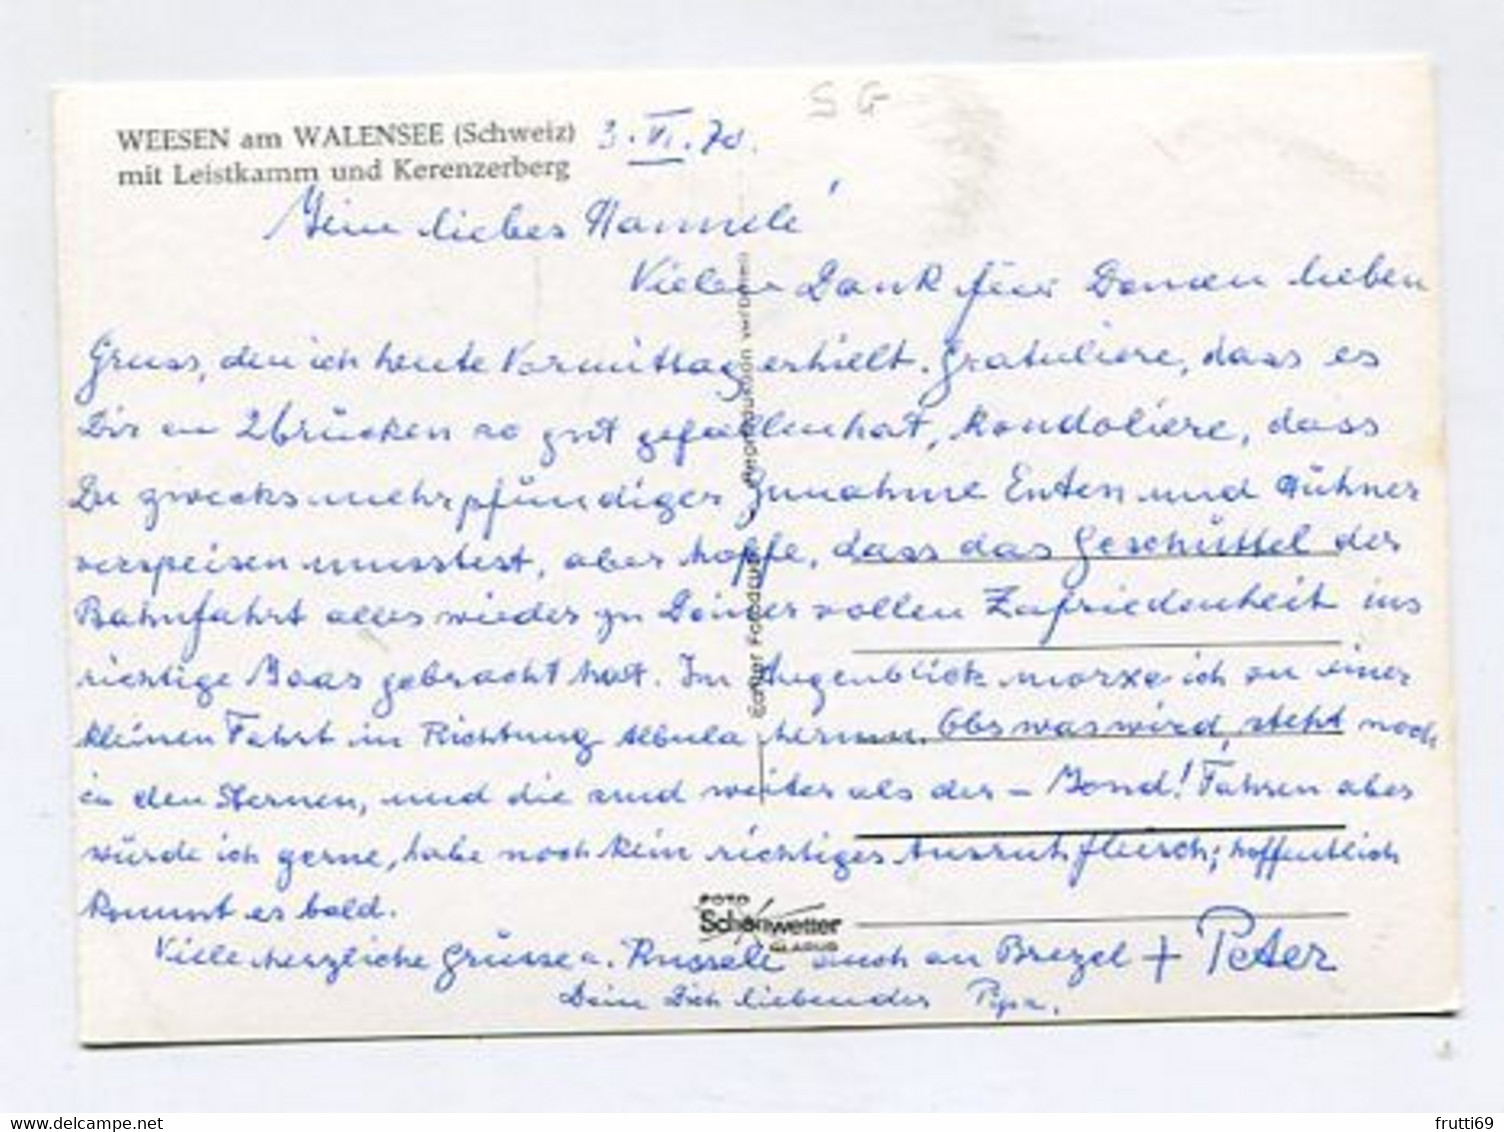 SG
WEESEN am WALENSEE (Schweiz) 3.VI.70.
mit Leistkamm und Kerenzerberg
Mein liebes Hannele'
Vielen Dank für Deinen lieben
Gruss, den ich heute Vormittag erhielt. Gratuliere, dass es
Dir in 2brücken so gut gefallen hat, kondoliere, dass
Du zwecks mehrpfündiger Zunahme Enten und Hühner
verspeisen musstest, aber hoffe, dass das Geschüttel der
Bahnfahrt alles wieder zu Deiner vollen Zufriedenheit ins
richtige Maas gebracht hat. Im Augenblick murxe ich an einer
kleinen Fahrt in Richtung Albula herum. Obs was wird, steht noch
in den Sternen, und die sind weiter als der – Mond! Fahren aber
würde ich gerne, habe noch kein richtiges Ausruhfleisch; hoffentlich
kommt es bald.
Viele herzliche Grüsse u. Küssele auch an Brezel + Peter
Dein Dich liebender Papa.
Echter Fotodruck Reproduktion verboten
FOTO
Schönwetter
GLARUS
frutti69